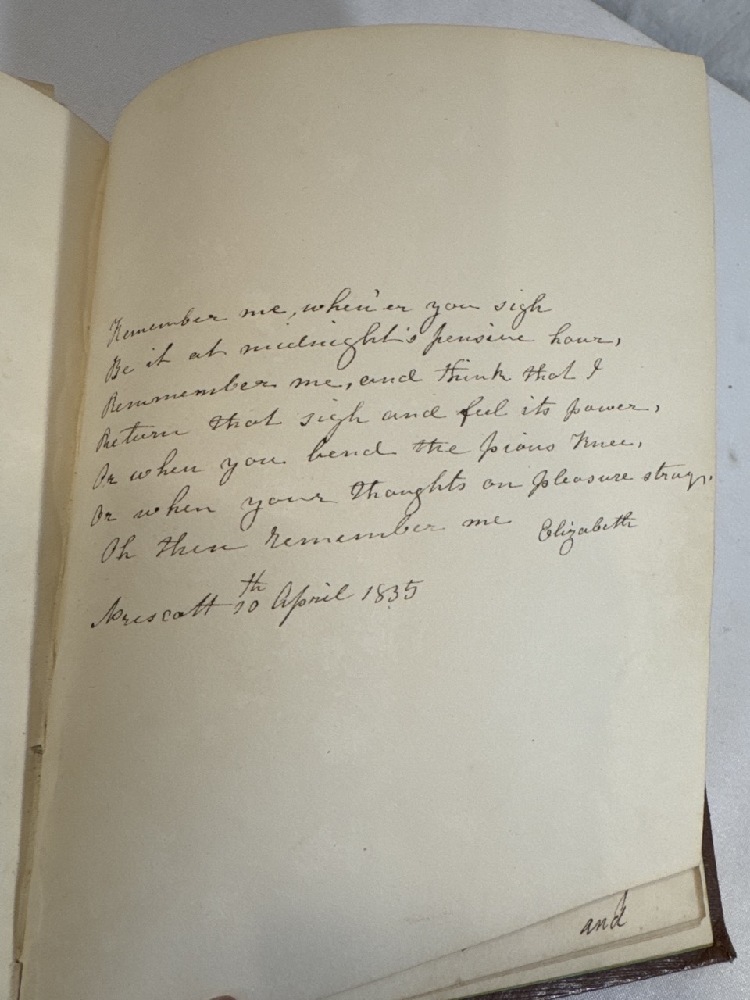 Remember me, when'er you sigh
Be it at midnight's pensive hour,
Remmember me, and think that I
Return that sigh and feel its power,
Or when you bend the pious knee,
Or when your thoughts on pleasure stray,
Oh then remember me
Elizabeth
Prescott 10th April 1835
and